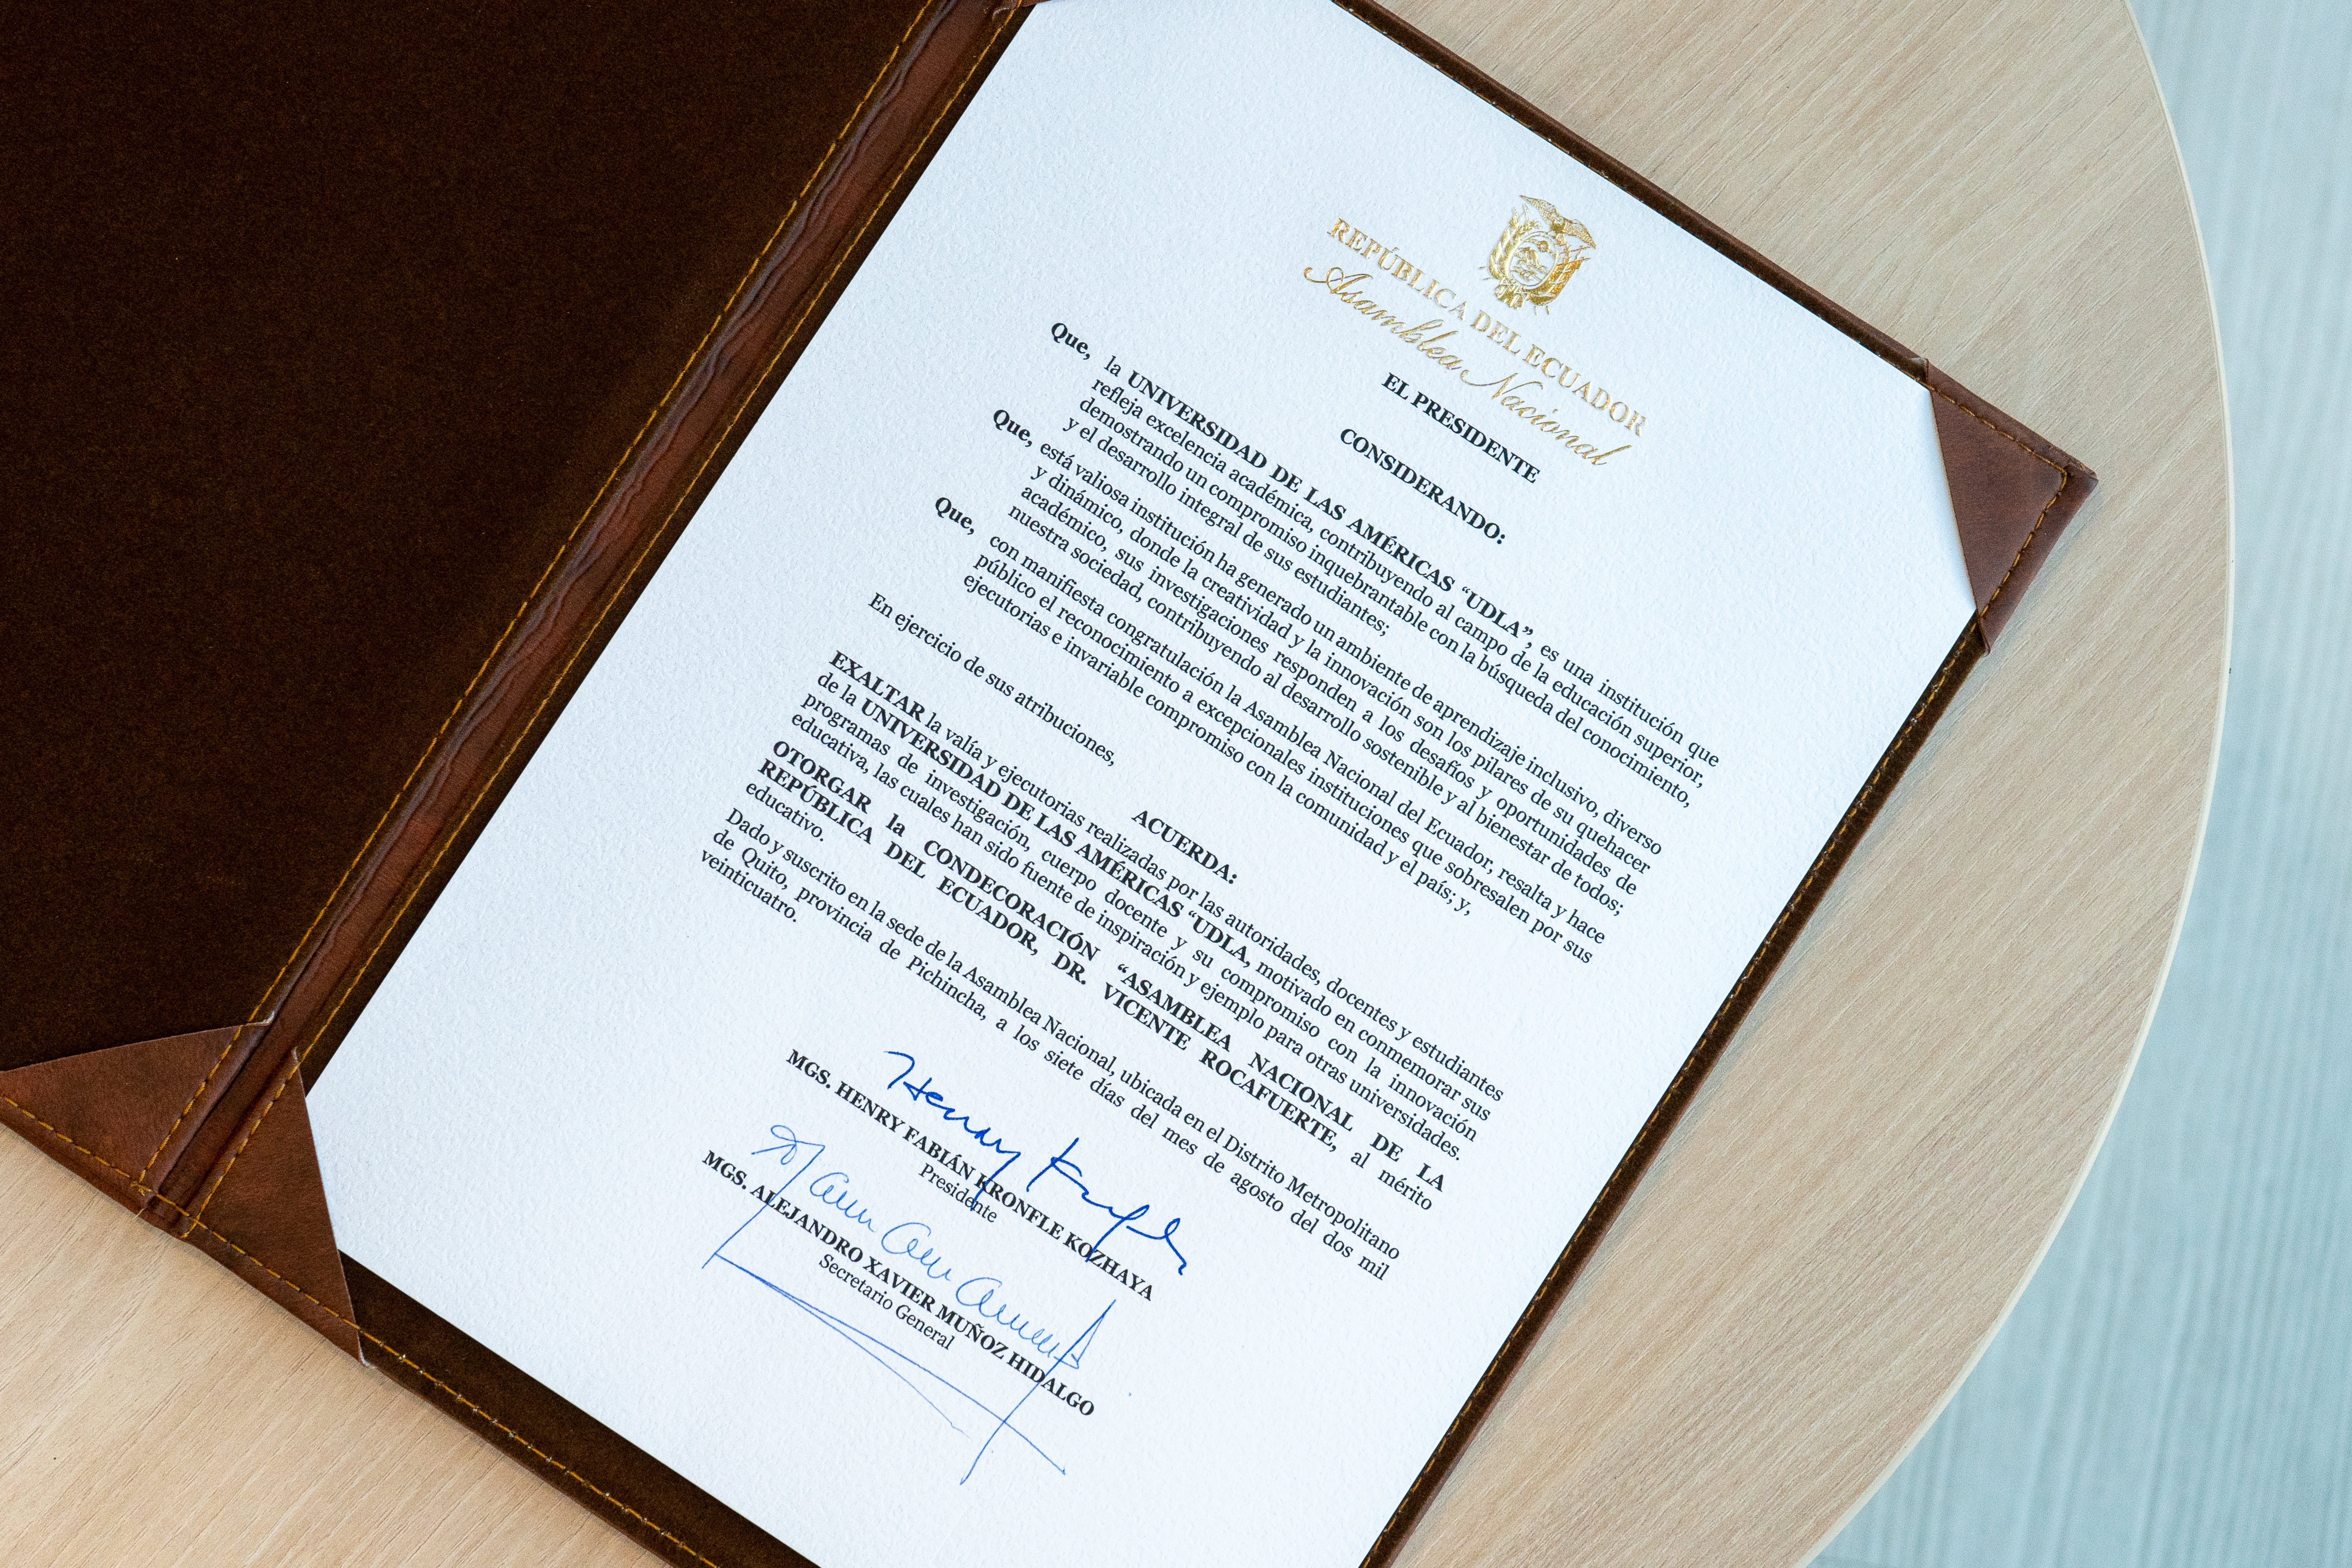 REPÚBLICA DEL ECUADOR
Asamblea Nacional
EL PRESIDENTE
CONSIDERANDO:
Que, la UNIVERSIDAD DE LAS AMÉRICAS “UDLA”, es una institución que
refleja excelencia académica, contribuyendo al campo de la educación superior,
demostrando un compromiso inquebrantable con la búsqueda del conocimiento,
y el desarrollo integral de sus estudiantes;
Que, está valiosa institución ha generado un ambiente de aprendizaje inclusivo, diverso
y dinámico, donde la creatividad y la innovación son los pilares de su quehacer
académico, sus investigaciones responden a los desafíos y oportunidades de
nuestra sociedad, contribuyendo al desarrollo sostenible y al bienestar de todos;
Que, con manifiesta congratulación la Asamblea Nacional del Ecuador, resalta y hace
público el reconocimiento a excepcionales instituciones que sobresalen por sus
ejecutorias e invariable compromiso con la comunidad y el país; y,
En ejercicio de sus atribuciones,
ACUERDA:
EXALTAR la valía y ejecutorias realizadas por las autoridades, docentes y estudiantes
de la UNIVERSIDAD DE LAS AMÉRICAS “UDLA, motivado en conmemorar sus
programas de investigación, cuerpo docente y su compromiso con la innovación
educativa, las cuales han sido fuente de inspiración y ejemplo para otras universidades.
OTORGAR la CONDECORACIÓN “ASAMBLEA NACIONAL DE LA
REPÚBLICA DEL ECUADOR, DR. VICENTE ROCAFUERTE, al mérito
educativo.
Dado y suscrito en la sede de la Asamblea Nacional, ubicada en el Distrito Metropolitano
de Quito, provincia de Pichincha, a los siete días del mes de agosto del dos mil
veinticuatro.
MGS. HENRY FABIÁN KRONFLE KOZHAYA
Presidente
MGS. ALEJANDRO XAVIER MUÑOZ HIDALGO
Secretario General